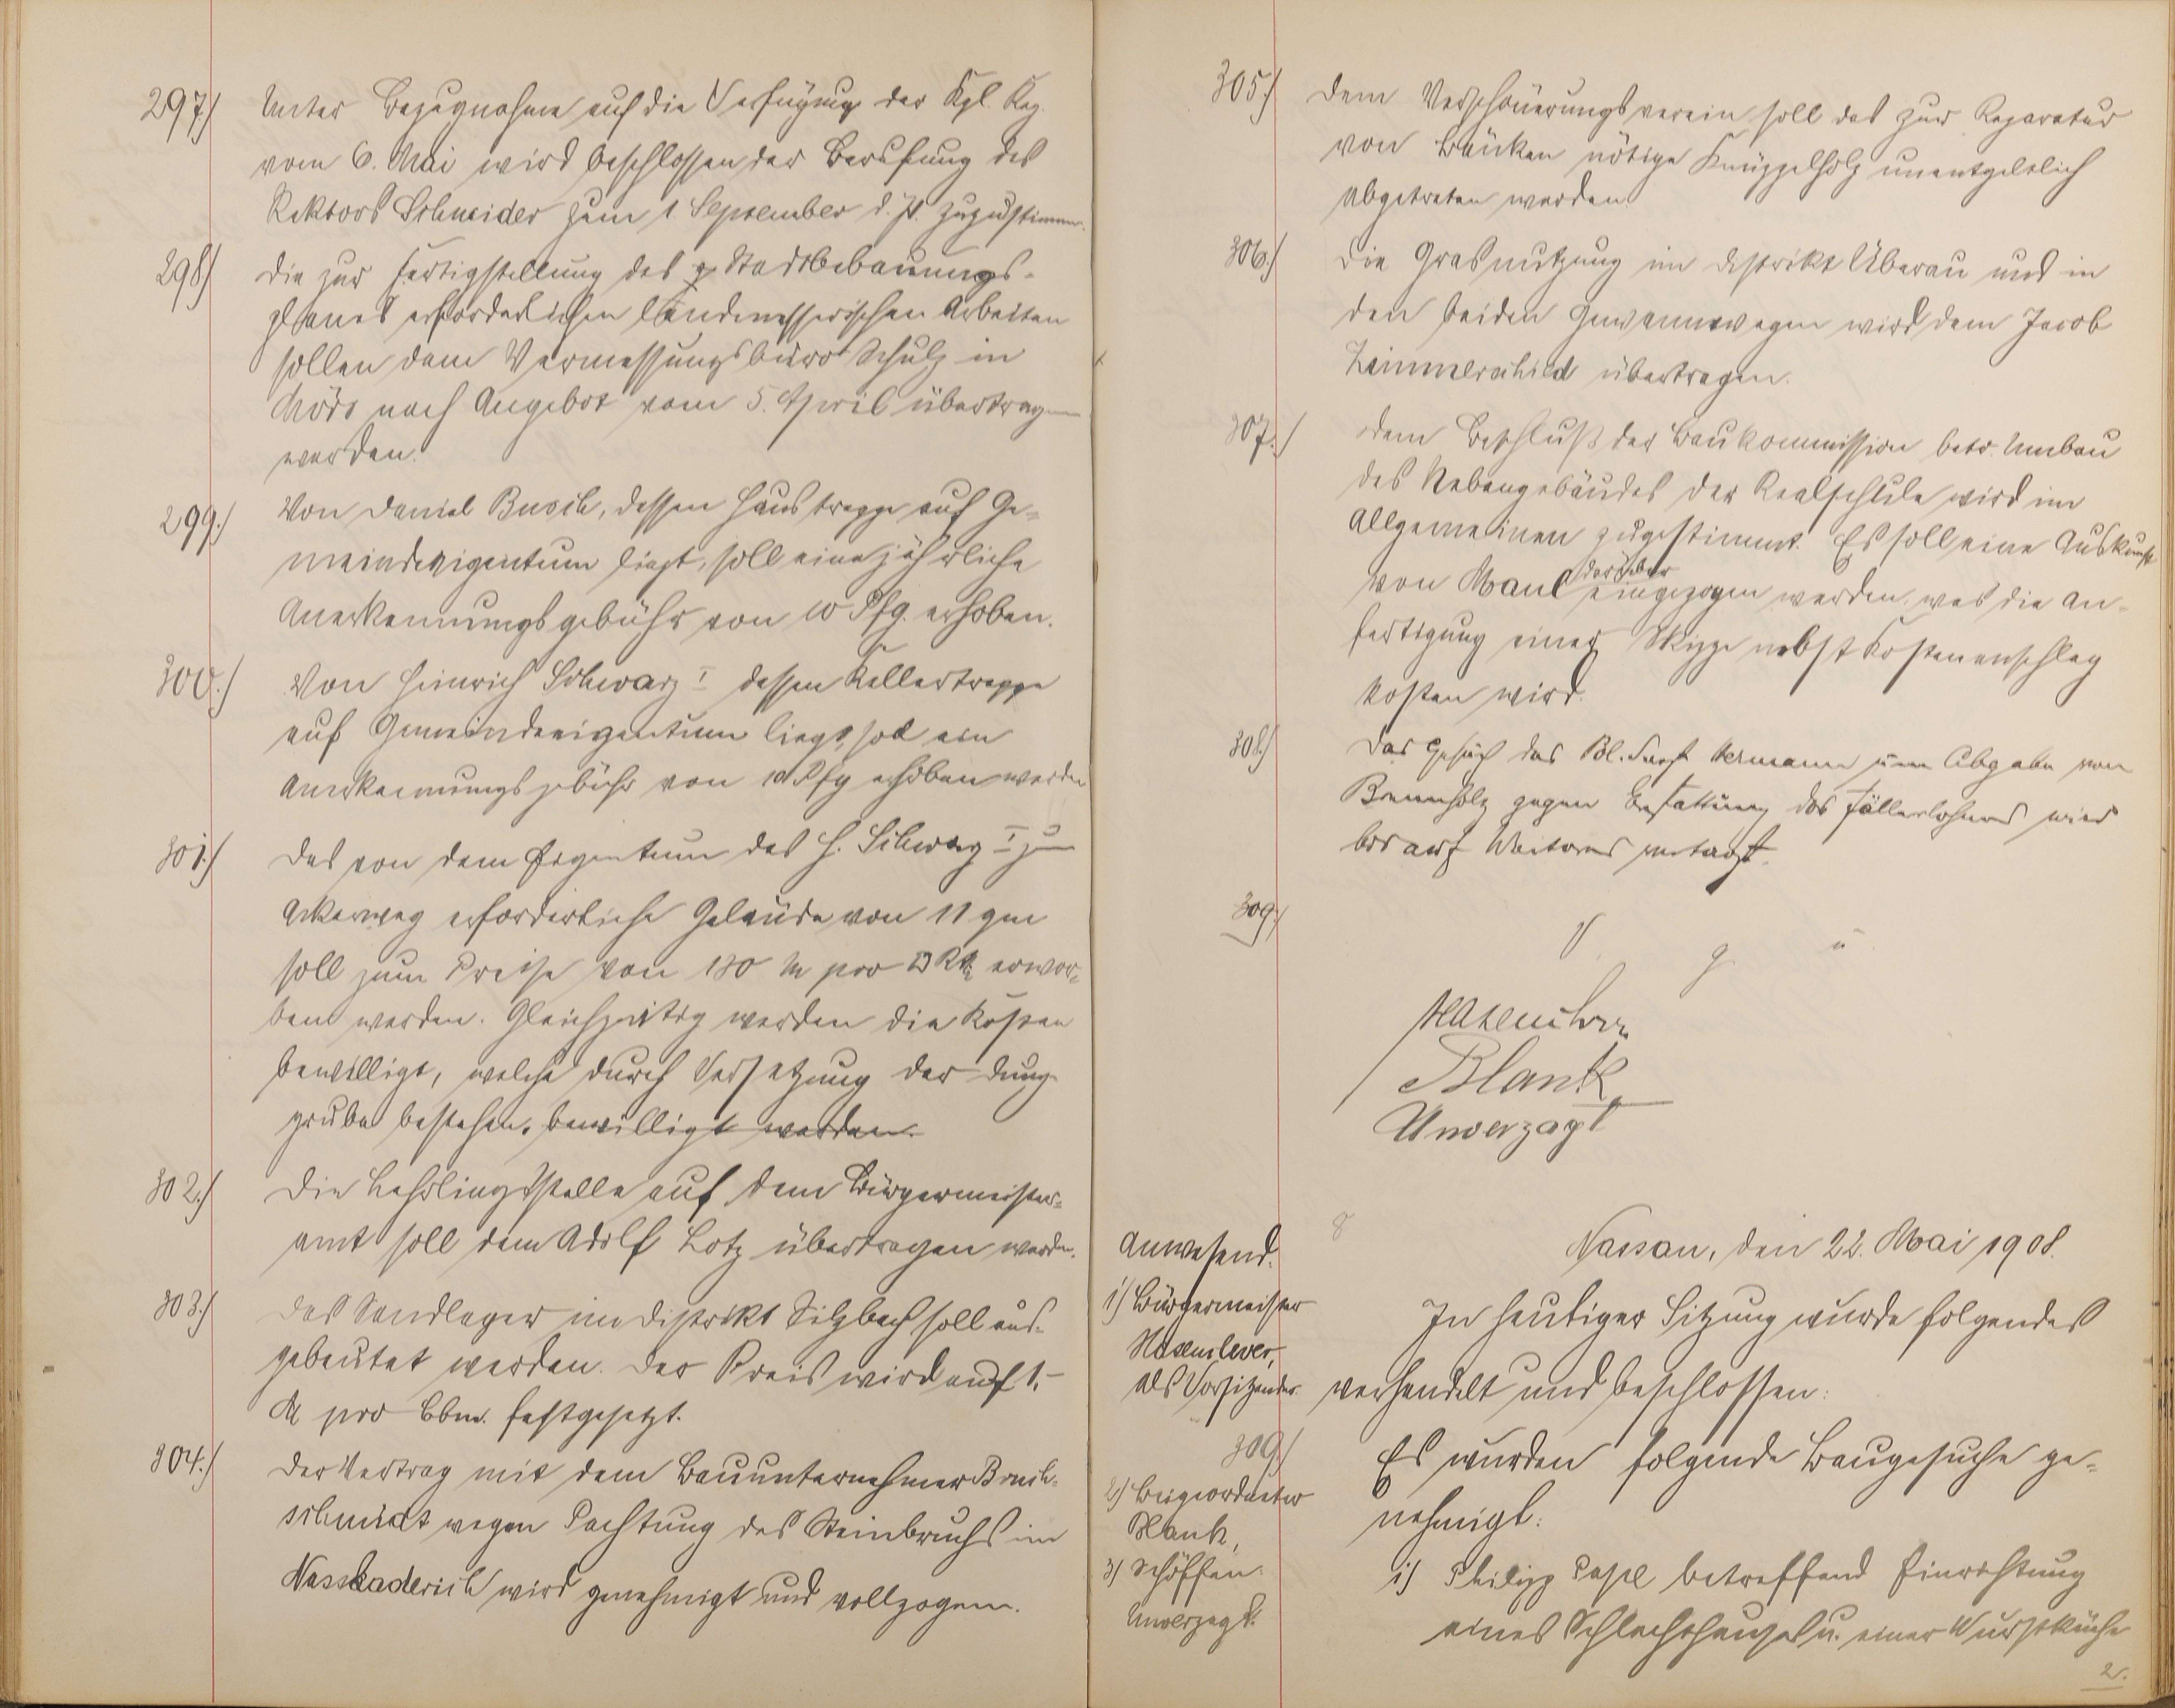 297./ Unter Bezugnahme auf die Verfügung der Kgl. Reg.
vom 6. Mai wird beschlossen der Berufung des
Rektors Schneider zum 1 September d. Js. zuzustimmen.
298/ Die zur Fertigstellung des Stadtbebauungs-
planes erforderlichen landmesserischen Arbeiten
sollen dem Vermessungsbüro Schulz in
Mörs nach Angebot vom 5. April übertragen
werden.
299./ Von Daniel Busch, dessen Haustreppe auf Ge-
meindeeigentum liegt, soll eine jährliche
Anerkennungsgebühr von 10 Pfg. erhoben.
300./ Von Heinrich Schwarz I dessen Kellertreppe
auf Gemeindeeigentum liegt, soll ein
Anerkennungsgebühr von 10 Pfg erhoben werden
301./ Das von dem Eigentum des H. Schwarz I zum
Ankerweg erforderliche Gelände von 11 qm
soll zum Preise von 130 M pro □ Rt. erwor-
ben werden. Gleichzeitig werden die Kosten
bewilligt, welche durch Versetzung der Dung-
grube bestehen. bewilligt werden.
302./ Die Lehrlingsstelle auf dem Bürgermeister-
amt soll dem Adolf Lotz übertragen werden.
303./ Das Sandlager im Distrikt Silzbach soll aus-
gebeutet werden. Der Preis wird auf 1.-
M pro Cbm. festgesetzt.
304./ Der Vertrag mit dem Bauunternehmer Bruch-
schmidt wegen Pachtung des Steinbruchs im
Nasskaderich wird genehmigt und vollzogen.
305./ Dem Verschönerungsverein soll das zur Reparatur
von Bänken nötige Knüppelholz unentgeltlich
abgetreten werden.
306./ Die Grasnutzung im Distrikt Überau und in
den beiden Gewannwegen wird dem Jacob
Zimmerschied übertragen.
307./ Dem Beschluß der Baukommission betr. Umbau
des Nebengebäudes der Realschule wird im
Allgemeinen zugestimmt. Es soll eine Auskunft
darüber
von Maul eingezogen werden, was die An-
fertigung einer Skizze nebst Kostenanschlag
kosten wird.
308./ Das Gesuch des Pol. Serg. Hermann um Abgabe von
Brennholz gegen Erstattung des Fällerlohnes wird
bis auf Weiteres vertagt.
309./
V. g. u.
Hasenclever
Blank
Unverzagt
8
Nassau, den 22. Mai 1908.
Anwesend:
1) Bürgermeister
Hasenclever,
als Vorsitzender
In heutiger Sitzung wurde folgendes
verhandelt und beschlossen:
309./ Es wurden folgende Baugesuche ge-
nehmigt:
2) Beigeordneter
Blank,
3) Schöffen:
Unverzagt.
1) Philipp Papl betreffend Einrichtung
eines Schlachthauses u. einer Wurstküche
2.